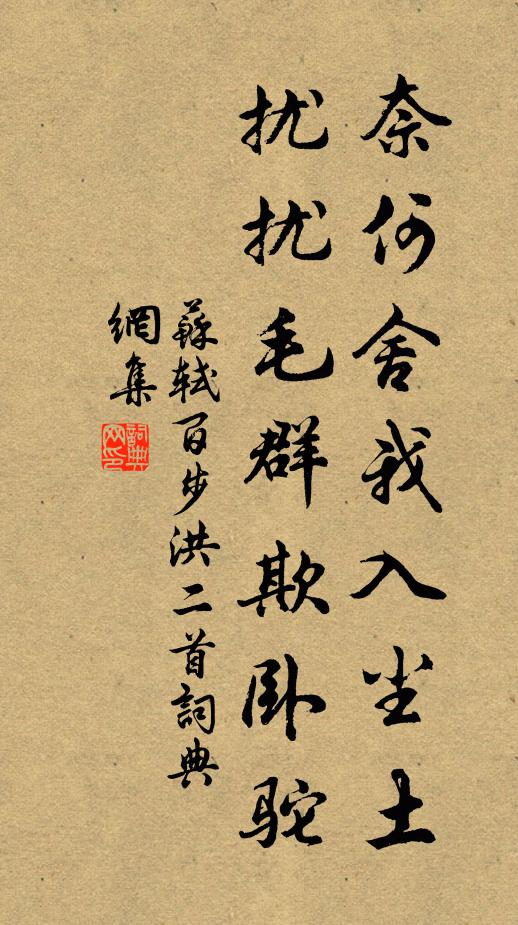 奈何舍我入尘土
扰扰毛群欺卧驼
蘇軾百步洪二首詞典
網集
詞典网印